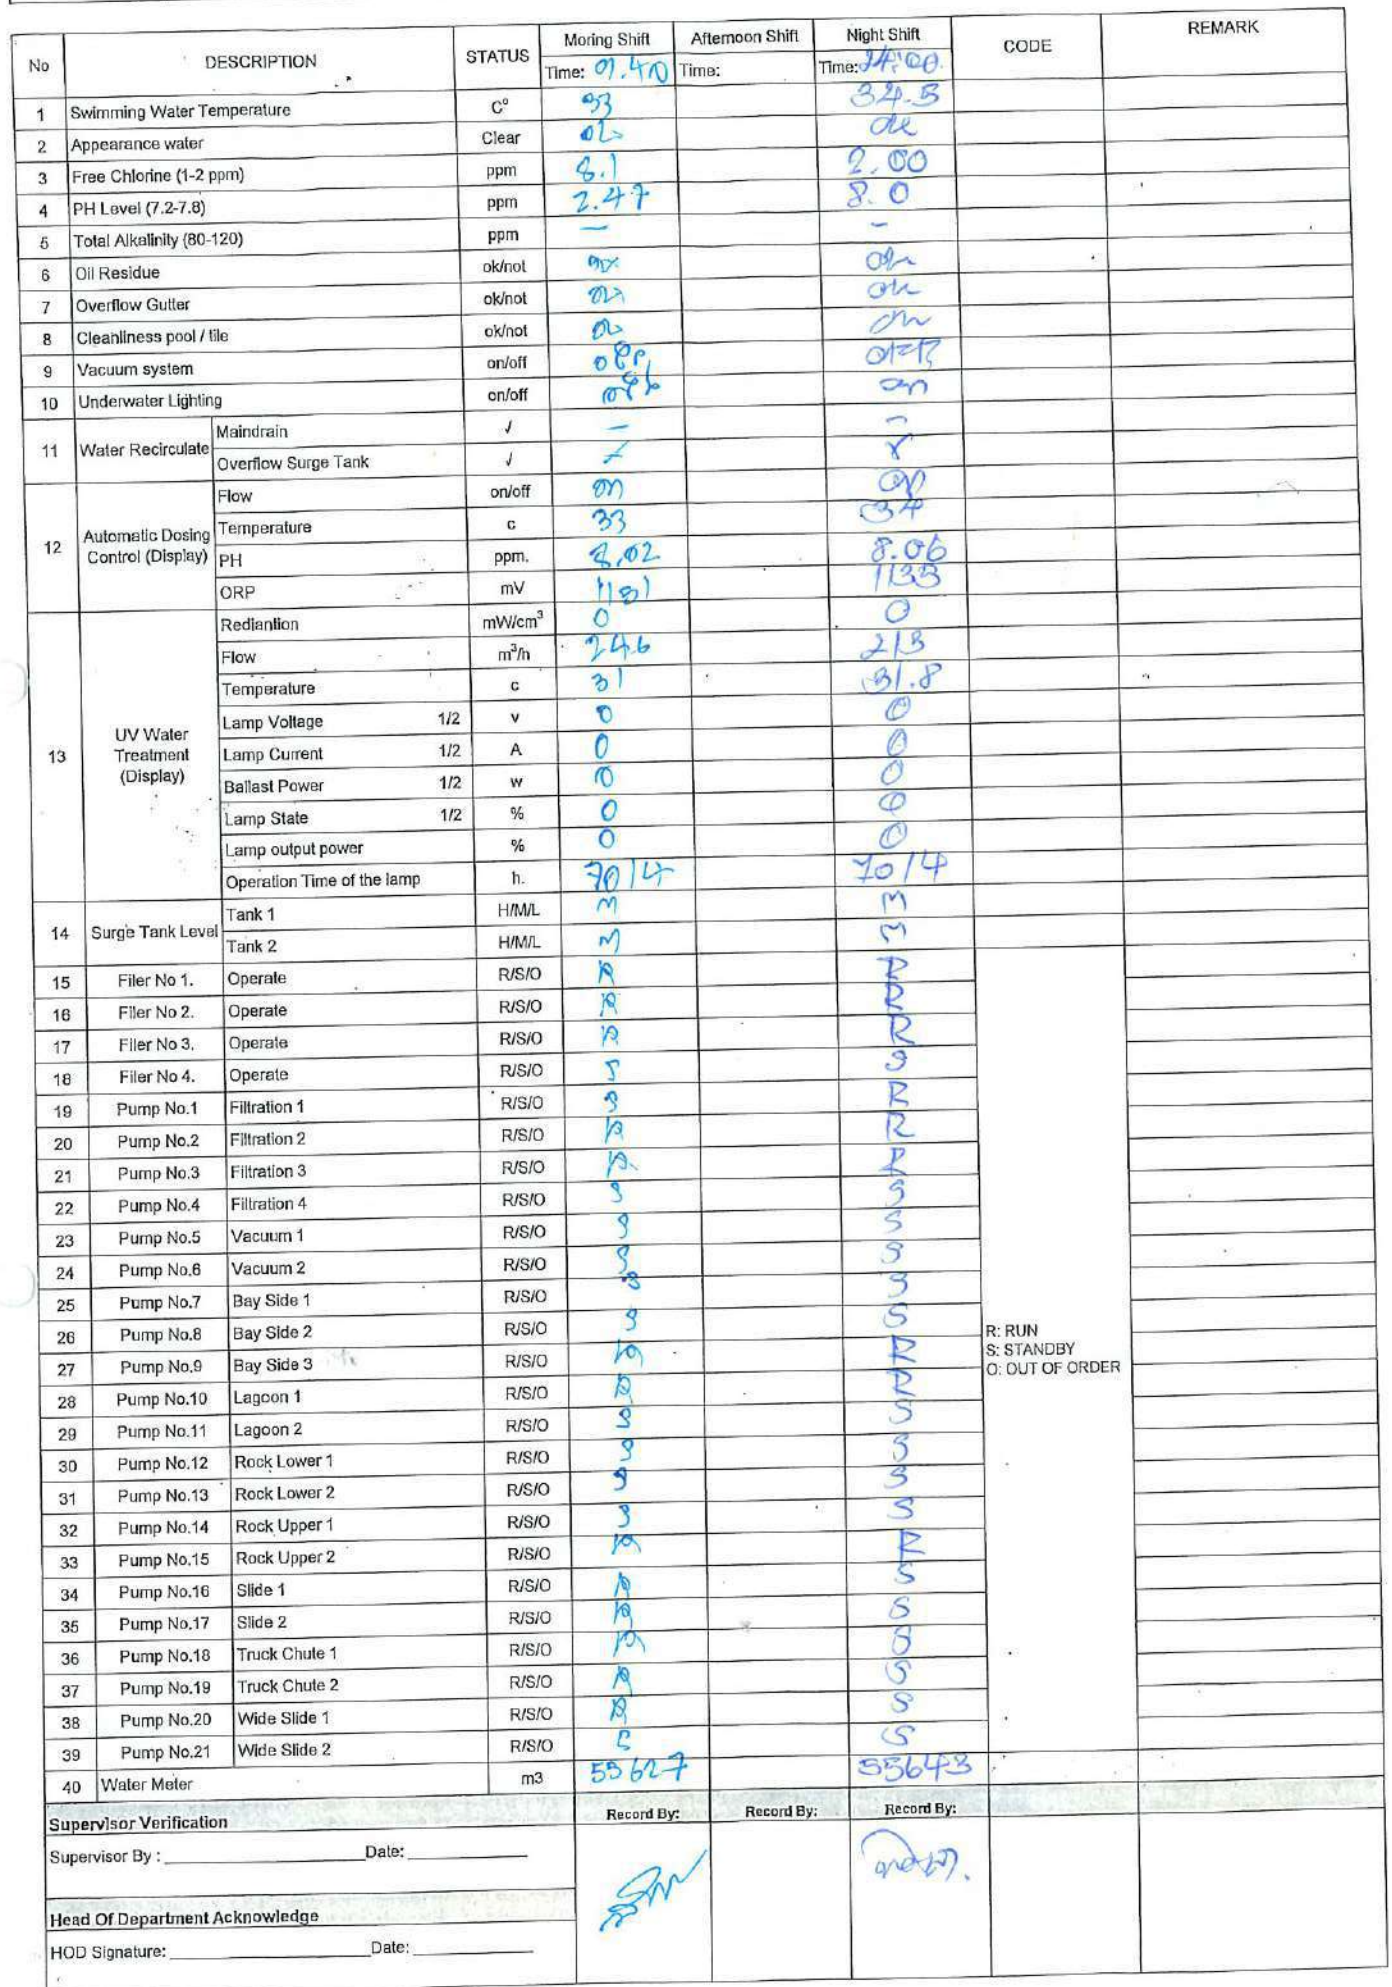 No DESCRIPTION STATUS Moring Shift Afternoon Shift Night Shift CODE REMARK
Time: 9.40 Time: Time: 24:00
1 Swimming Water Temperature C° 33 34.5
2 Appearance water Clear ok ok
3 Free Chlorine (1-2 ppm) ppm 8.1 2.00
4 PH Level (7.2-7.8) ppm 2.47 8.0
5 Total Alkalinity (80-120) ppm — -
6 Oil Residue ok/not ok ok
7 Overflow Gutter ok/not ok ok
8 Cleanliness pool / tile ok/not ok ok
9 Vacuum system on/off off OFF
10 Underwater Lighting on/off off on
11 Water Recirculate Maindrain √ — -
Overflow Surge Tank √
12 Automatic Dosing Control (Display) Flow on/off on on
Temperature c 33 34
PH ppm. 8.02 8.06
ORP mV 1131 1133
13 UV Water Treatment (Display) Rediantion mW/cm³ 0 0
Flow m³/h 246 213
Temperature c 31 31.8
Lamp Voltage 1/2 v 0 0
Lamp Current 1/2 A 0 0
Ballast Power 1/2 w 0 0
Lamp State 1/2 % 0 0
Lamp output power % 0 0
Operation Time of the lamp h. 7014 7014
14 Surge Tank Level Tank 1 H/M/L M M
Tank 2 H/M/L M M
15 Filer No 1. Operate R/S/O R R
16 Filer No 2. Operate R/S/O R R
17 Filer No 3. Operate R/S/O R R
18 Filer No 4. Operate R/S/O S S
19 Pump No.1 Filtration 1 R/S/O S R
20 Pump No.2 Filtration 2 R/S/O R R
21 Pump No.3 Filtration 3 R/S/O R R
22 Pump No.4 Filtration 4 R/S/O S S
23 Pump No.5 Vacuum 1 R/S/O S S
24 Pump No.6 Vacuum 2 R/S/O S S
25 Pump No.7 Bay Side 1 R/S/O S S
26 Pump No.8 Bay Side 2 R/S/O S S
R: RUN
S: STANDBY
O: OUT OF ORDER
27 Pump No.9 Bay Side 3 R/S/O R R
28 Pump No.10 Lagoon 1 R/S/O R R
29 Pump No.11 Lagoon 2 R/S/O S S
30 Pump No.12 Rock Lower 1 R/S/O S S
31 Pump No.13 Rock Lower 2 R/S/O S S
32 Pump No.14 Rock Upper 1 R/S/O S S
33 Pump No.15 Rock Upper 2 R/S/O R R
34 Pump No.16 Slide 1 R/S/O R S
35 Pump No.17 Slide 2 R/S/O R S
36 Pump No.18 Truck Chute 1 R/S/O R S
37 Pump No.19 Truck Chute 2 R/S/O R S
38 Pump No.20 Wide Slide 1 R/S/O R S
39 Pump No.21 Wide Slide 2 R/S/O S S
40 Water Meter m3 55627 55643
Supervisor Verification Record By: Record By: Record By:
Supervisor By : Date:
Head Of Department Acknowledge
HOD Signature: Date: